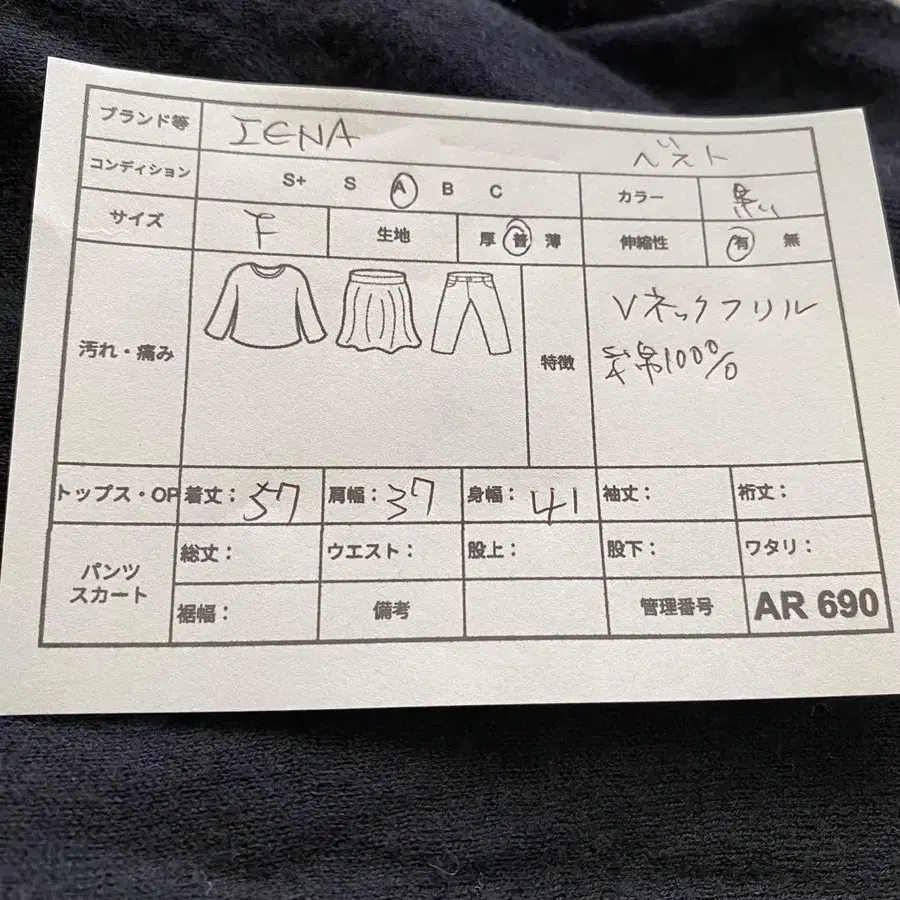 ブランド等 IENA ベスト
コンディション S+ S A B C カラー 黒い
サイズ F 生地 厚 普 薄 伸縮性 有 無
汚れ・痛み 特徴 Vネックフリル
綿100%
トップス・OP 着丈: 57 肩幅: 37 身幅: 41 袖丈: 裄丈:
パンツ スカート 総丈: ウエスト: 股上: 股下: ワタリ:
裾幅: 備考 管理番号 AR 690